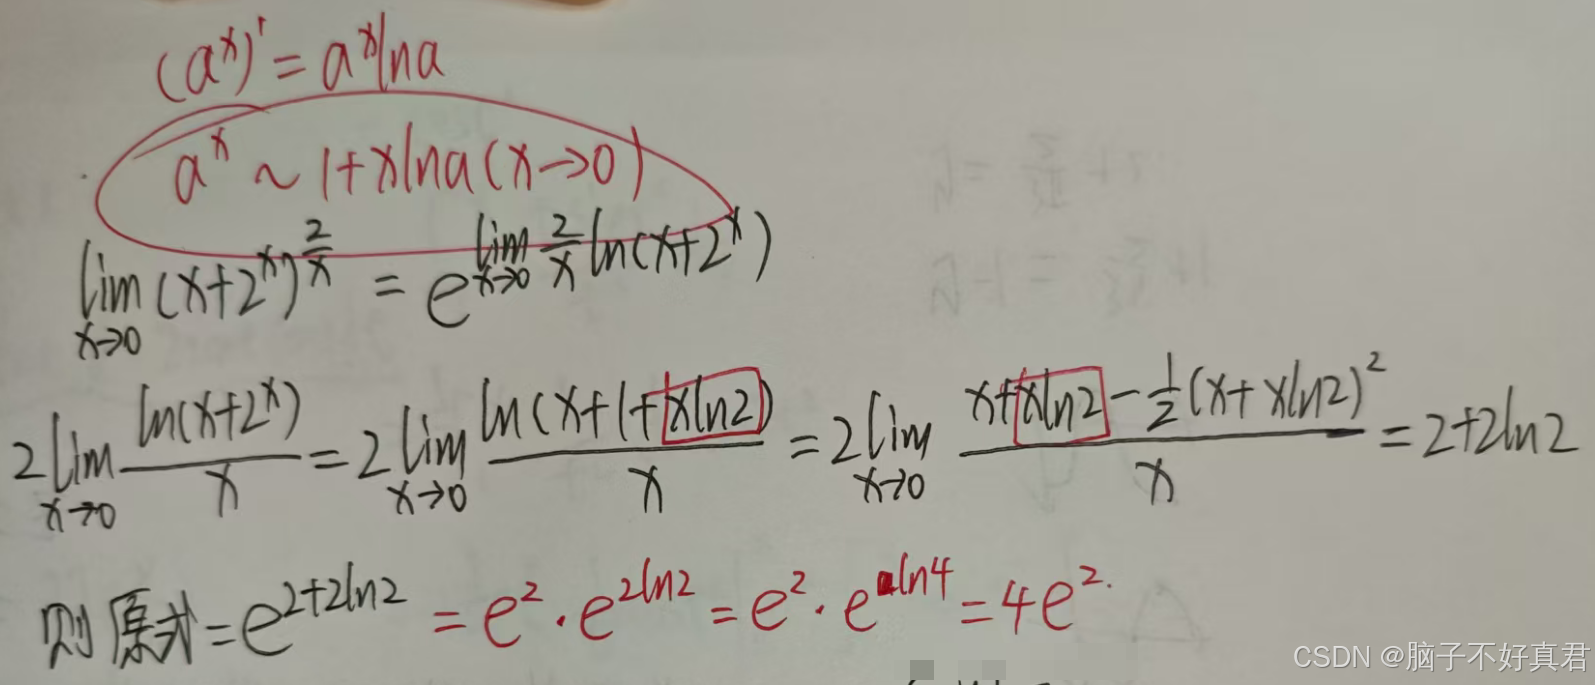 (aˣ)' = aˣlna
aˣ ~ 1+xlna(x→0)
lim_{x→0} (x+2ˣ)^{2/x} = e^{lim_{x→0} 2/x ln(x+2ˣ)}
2lim_{x→0} ln(x+2ˣ)/x = 2lim_{x→0} ln(x+1+xln2)/x = 2lim_{x→0} (x+xln2-½(x+xln2)²)/x = 2+2ln2
则原式=e^{2+2ln2} = e²·e^{2ln2} = e²·e^{ln4} = 4e².
CSDN @脑子不好真君